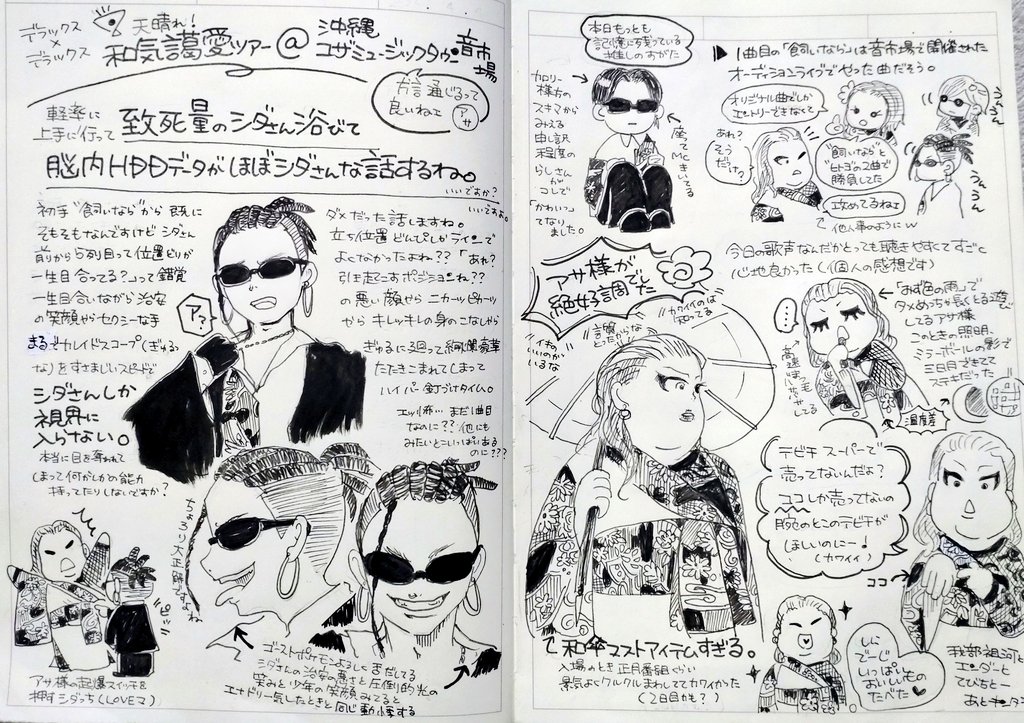 デラックス
×
デラックス
天晴れ!
和気藹愛ツアー@
沖縄
コザミュージックタウン音市場
方言通じるって
良いねェ
アサ
軽率に
上手に行って
致死量のシダさん浴びて
脳内HDDデータがほぼシダさんな話するね。
いいですか?
いいですよ。
初手"飼いなら"から既に
そもそもなんですけどシダさん
前から5列目って位置どりが
一生目合ってる?って錯覚
一生目合いながら治安
の笑顔からセクシーな手
まるでカレイドスコープ(ぎゅるっ
な)をすさまじいスピードで
シダさんしか
視界に
入らない。
本当に目を奪われて
しまって何かしらの能力
持ってたりしないですか?
ダメだった話しますね。
立ち位置どんぴしゃラインで
よくなかったよね??「あれ?
引き起こすポジションね??
の悪い顔からニカーッピカーッ
からキレッキレの身のこなしから
ぎゅるに3廻って絢爛豪華
たたきこまれてしまって
ハイパー釘づけタイム。
エッ怖… まだ1曲目
なのに?? 他にも
みたいとこいっぱいある
のに???
ア?
ちょろり大正解ですよね
アサ様の起爆スイッチを
押すシダっち(LOVE2)
ピッ
ゴーストポケモンようしく舌だしてる
シダさんの治安の悪さと圧倒的光の
笑みと少年の笑顔みると
エナドリ一気したときと同じ動悸する
本日もっとも
記憶に残っている
推しのすがた
カロリー
様方の
スキマから
みえる
申し訳
程度の
らしさん
がコレで
「かわいっ」
てなりました。
座ってMCきいてる
▶1曲目の「飼いなら」は音市場で開催された
オーディションライブでやった曲だそう。
オリジナル曲でしか
エントリーできなくて
あれ?
そう
だっけ?
"飼いなら"と
ヒトヨの2曲で
勝負してた
攻めてるねェ
他人事のようにw
うんうん
うんうん
アサ様が
絶好調でした
今日の歌声なんだかとっても聴きやすくてすごく
心地良かった(個人の感想です)
カワイイのは
知ってる
イキの
いいのが
いるな
…
「あず色の雨」で
タメめっちゃ長くとる澄まし
してるアサ様
このときの照明、
ミラーボールの影で
三日月できてて
ステキだった
高速まばたきしてる
温度差
テビチ スーパーで
売ってないんだよ?
ココしか売ってないの
腕のとこのテビチが
ほしいのにー!
(カワイイ)
ココ→
和傘マストアイテムすぎる。
入場のとき正月番組ぐらい
景気よくクルクルまわしててカワイかった
(2日目かも?)
しに
でーじ
いっぱい
おいしいもの
たべた♡
我部祖河と
エンダーと
てびちとー
あとチンタ